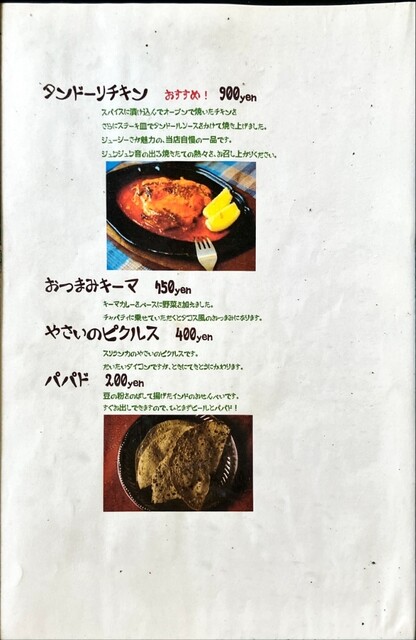 タンドーリチキン おすすめ! 900yen
スパイスに漬け込んでオーブンで焼いたチキンを
さらにステーキ皿でタンドールソースをかけて焼き上げました。
ジューシーさが魅力の、当店自慢の一品です。
ジュンジュン音の出る焼きたての熱々を、お召し上がりください。
おつまみキーマ 450yen
キーマカレーをベースに野菜を加えました。
チャパティに乗せていただくとタコス風のおつまみになります。
やさいのピクルス 400yen
スリランカのやさいのピクルスです。
だいたいダイコンですが、ときにてきとうにかわります。
パパド 200yen
豆の粉をのばして揚げたインドのおせんべいです。
すぐお出しできますので、ひとまずビールとパパド!